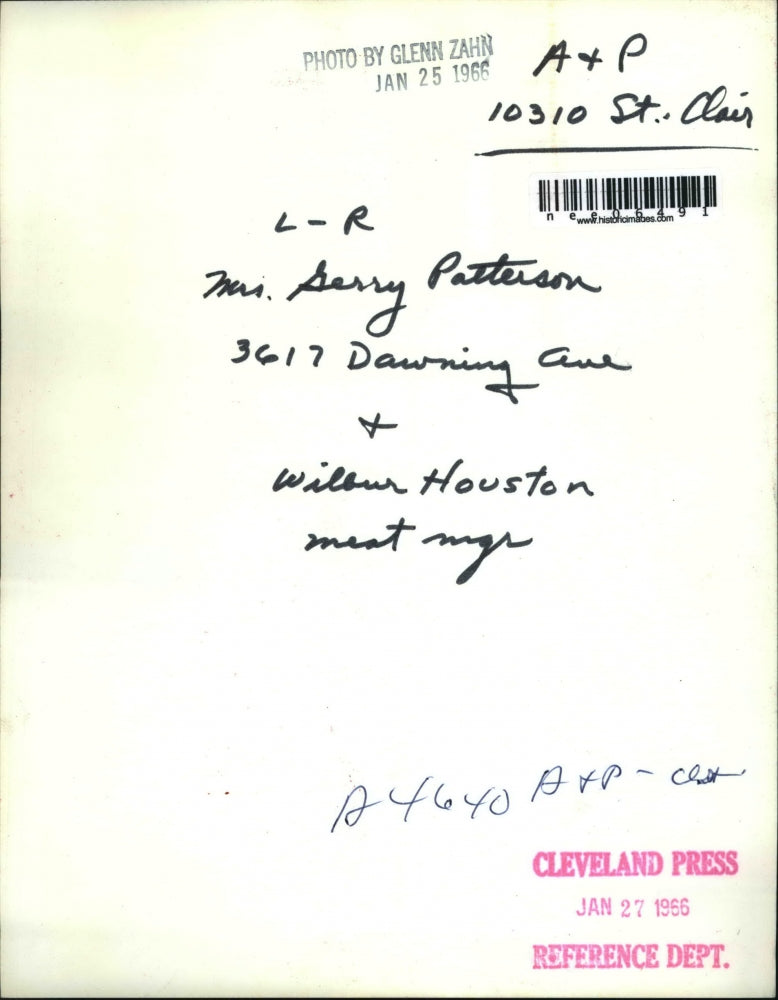 PHOTO BY GLENN ZAHN
JAN 25 1966
A + P
10310 St. Clair
nee06491
www.historicimages.com
L - R
Mrs. Gerry Patterson
3617 Dawning Ave
+
Wilbur Houston
meat mgr
A4640 A+P -
CLEVELAND PRESS
JAN 27 1966
REFERENCE DEPT.